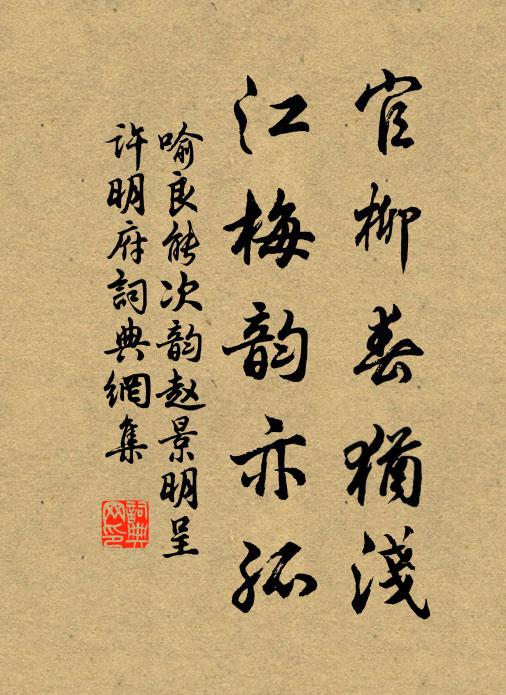 官柳春犹淺
江梅韵亦孤
喻良能次韵赵景明呈
许明府詞典網集
詞典
网印